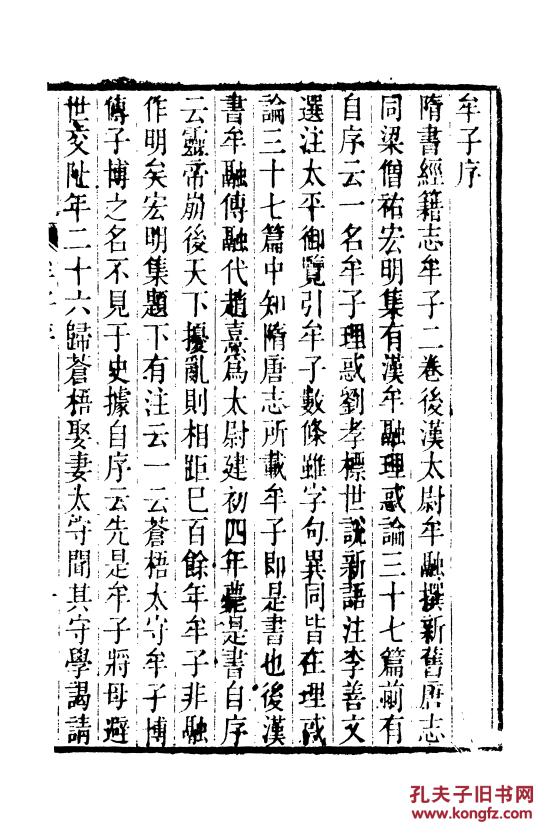 牟子序
隋書經籍志牟子二卷後漢太尉牟融撰新舊唐志
同梁僧祐宏明集有漢牟融理惑論三十七篇前有
自序云一名牟子理惑劉孝標世說新語注李善文
選注太平御覽引牟子數條雖字句異同皆在理惑
論三十七篇中知隋唐志所載牟子即是書也後漢
書牟融傳融代趙憙爲太尉建初四年薨是書自序
云靈帝崩後天下擾亂則相距巳百餘年牟子非融
作明矣宏明集題下有注云一云蒼梧太守牟子博
傳子博之名不見于史據自序云先是牟子將母避
世交阯年二十六歸蒼梧娶妻太守聞其守學謁請
牟子序
孔夫子旧书网
www.kongfz.com